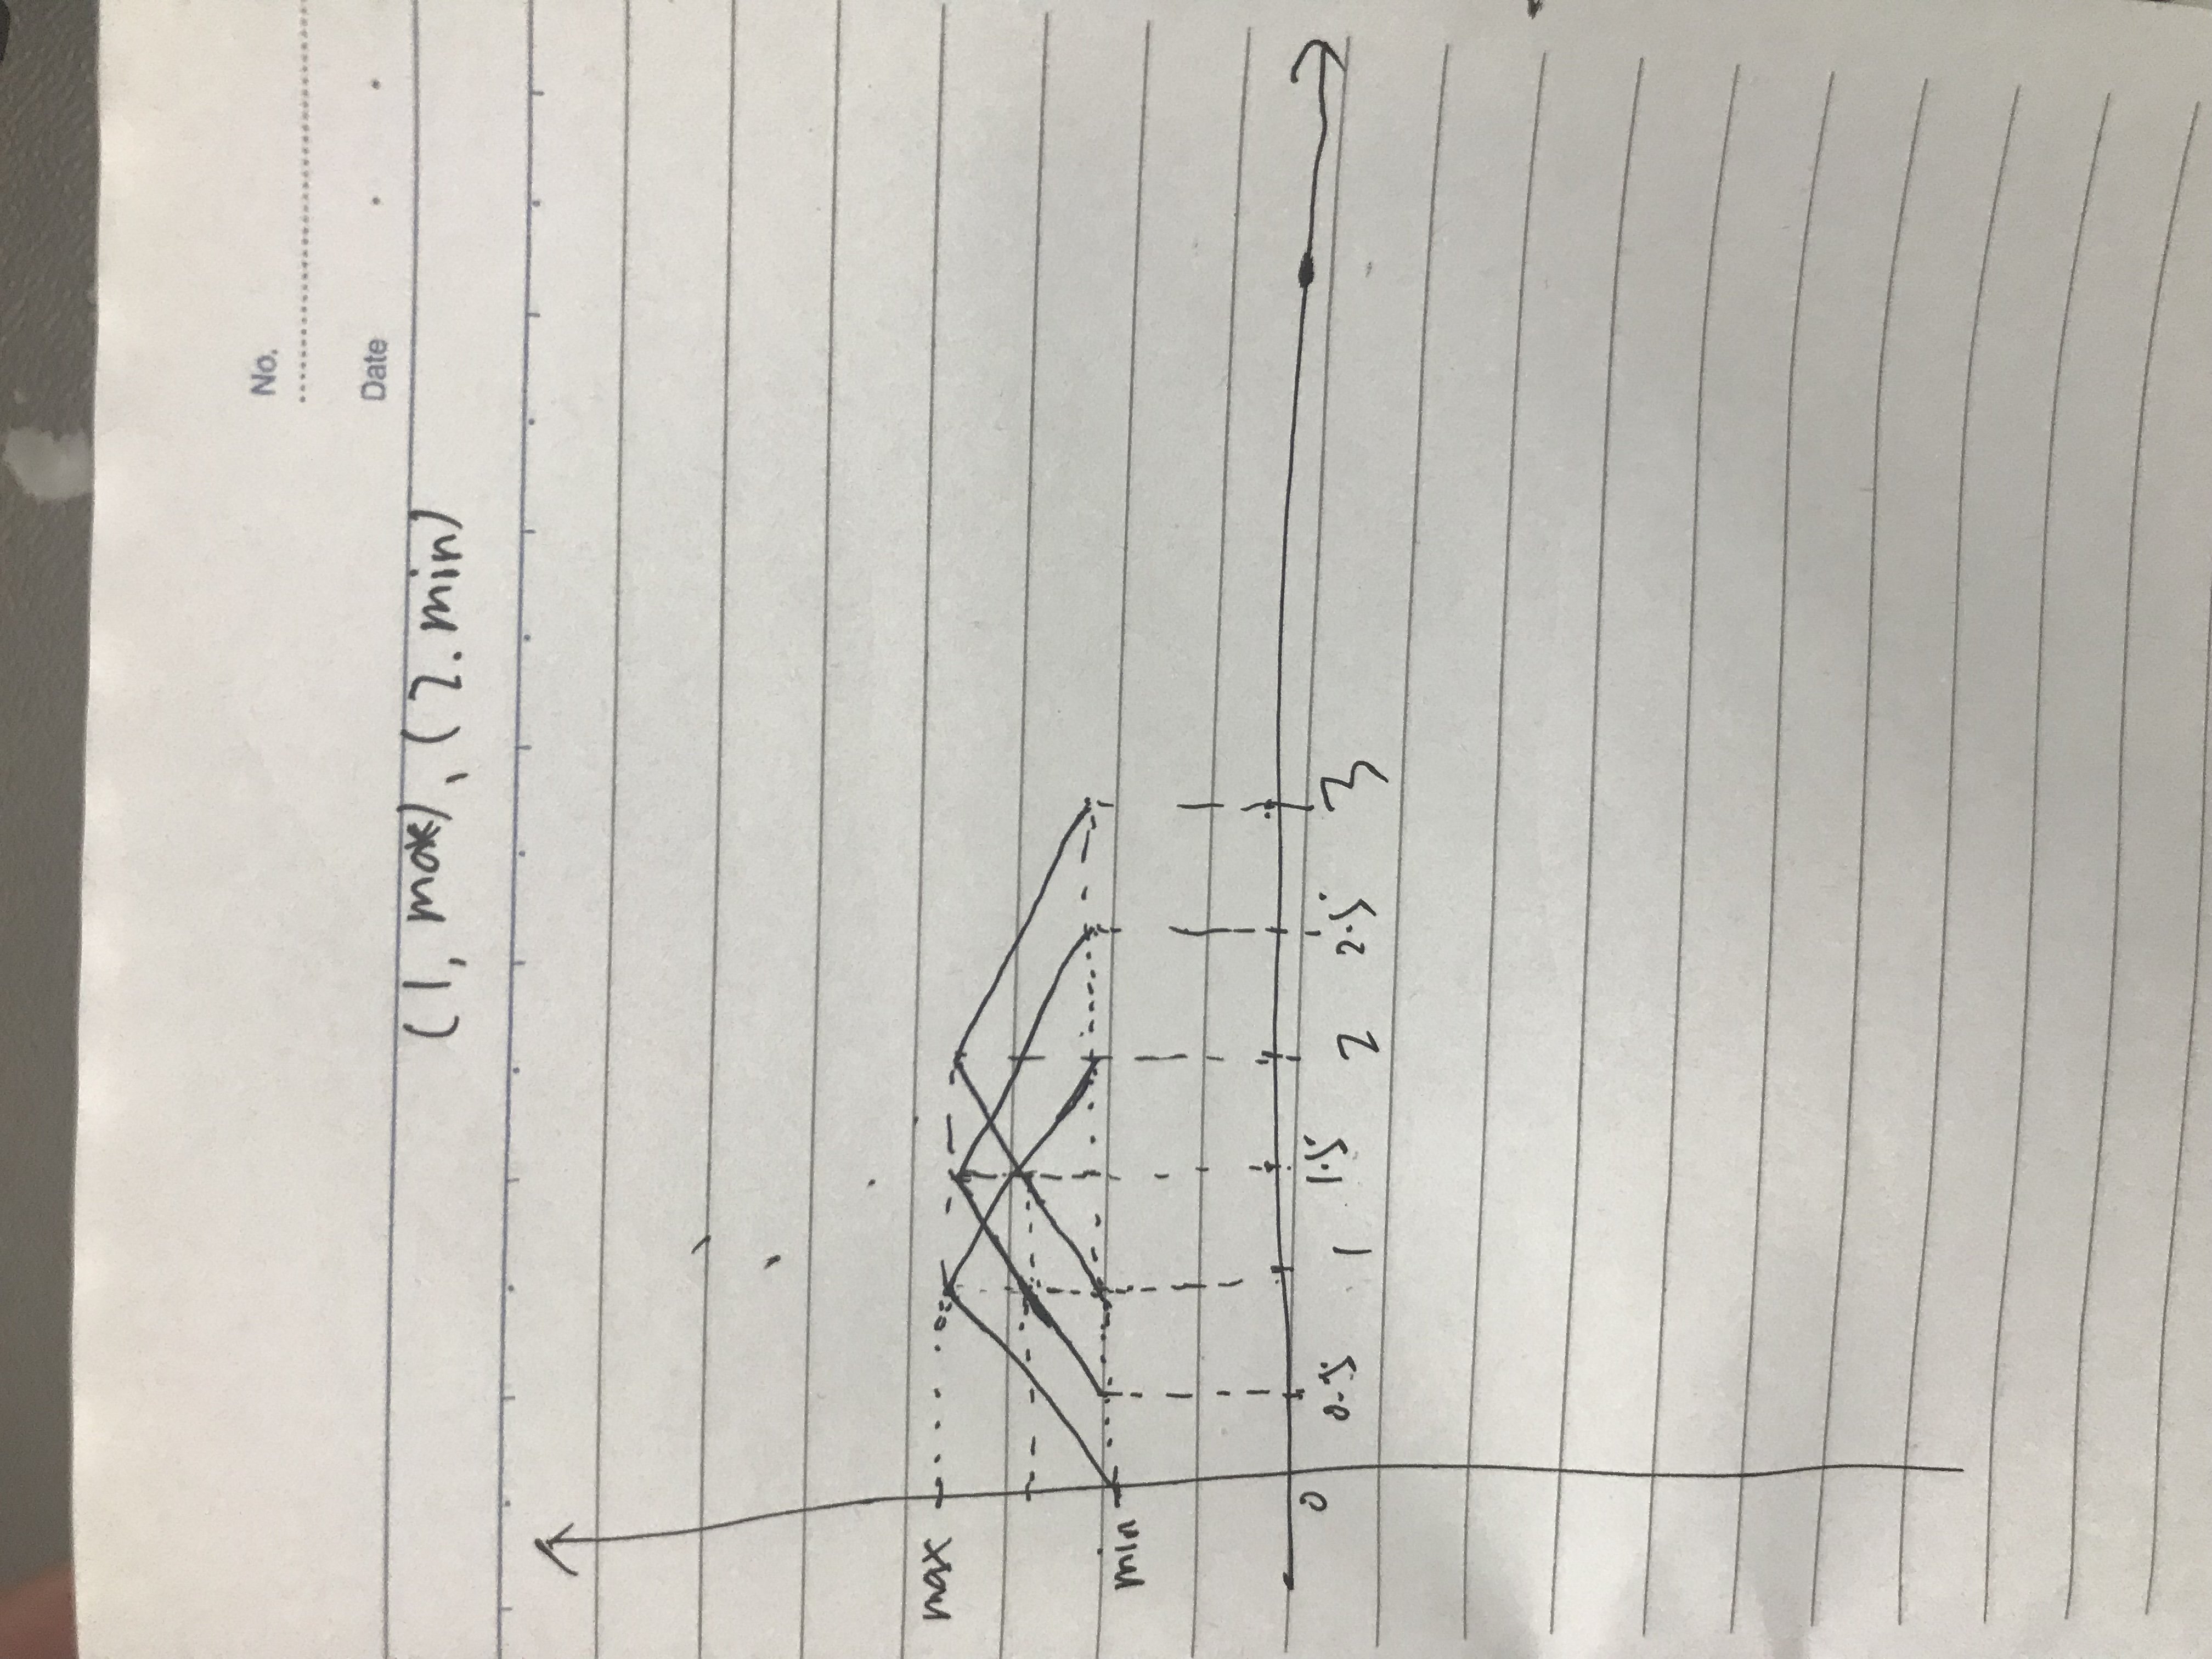 No.
Date
(1, max), (2. min)
max
min
0 0.5 1 1.5 2 2.5 3